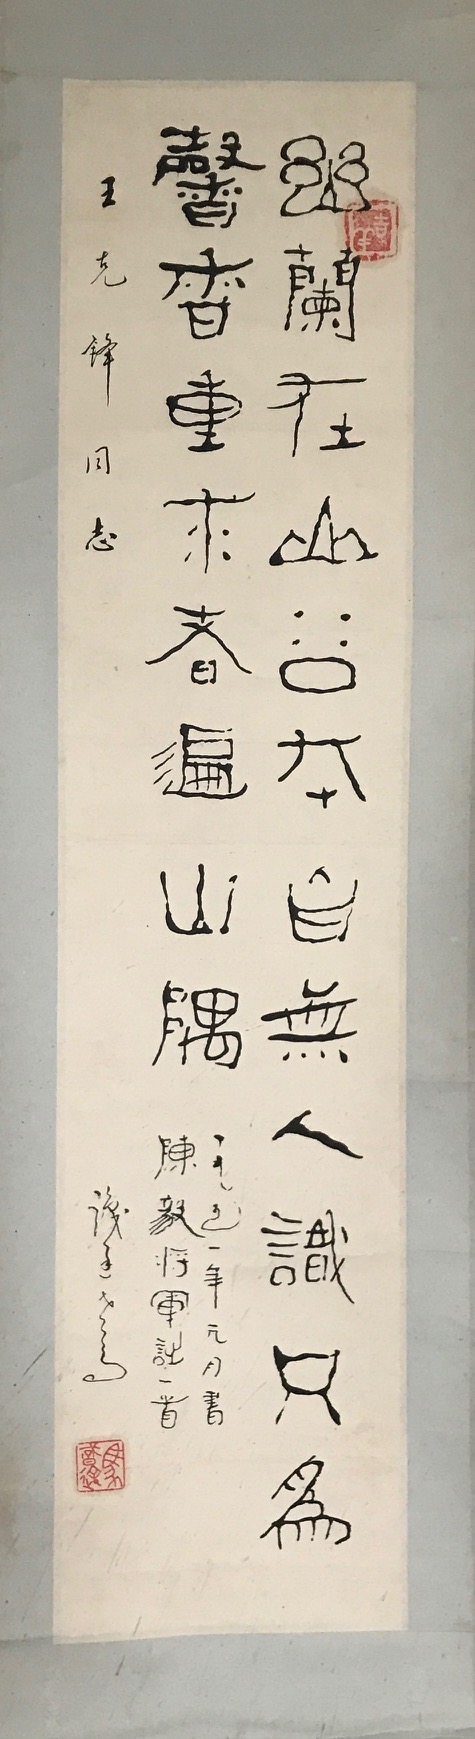 幽蘭在山谷本自無人識只為
馨香重求者遍山隅
一九八一年元月書
陳毅將軍詩一首
王克鋒同志